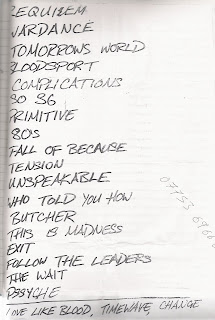 REQUIEM
WARDANCE
TOMORROWS WORLD
BLOODSPORT
COMPLICATIONS
SO 36
PRIMITIVE
80s
FALL OF BECAUSE
TENSION
UNSPEAKABLE
WHO TOLD YOU HOW
BUTCHER
THIS IS MADNESS
EXIT
FOLLOW THE LEADERS
THE WAIT
PSYCHE
LOVE LIKE BLOOD, TIMEWAVE, CHANGE